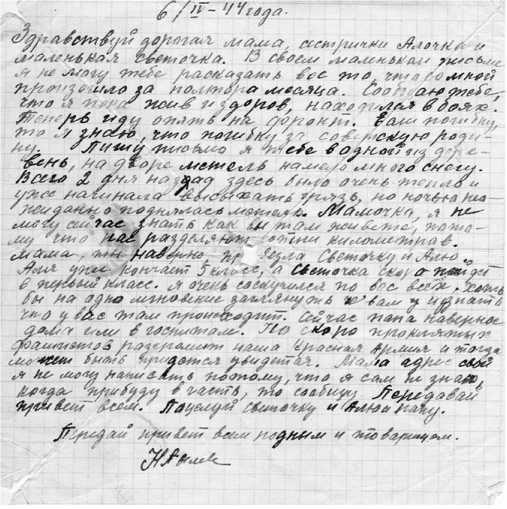 6/IV-44 года.
Здравствуй дорогая мама, сестрички Алочка и
маленькая Светочка. В своем маленьком письме
я не могу тебе расказать все то, что со мной
произошло за полтора месяца. Сообщаю тебе,
что я пока жив и здоров, находился в боях.
Теперь иду опять на фронт. Если погибну,
то я знаю, что погибну за советскую роди-
ну. Пишу письмо я тебе в одной из дере-
вень, на дворе метель намело много снегу.
Всего 2 дня назад здесь было очень тепло и
уже начинала высыхать грязь, но ночью нео-
жиданно поднялась метель. Мамочка, я не
могу сейчас знать как вы там живете, пото-
му что нас разделяют сотни километров.
Мама, ты наверно Светочку и Алю.
Аля уже кончает 5 класс, а Светочка скоро пойдет
в первый класс. Я очень соскучился по вос всех. Хоть
бы на одно мгновение заглянуть к вам и узнать
что у вас там происходит. Сейчас папа наверное
дома или в госпитале. Но скоро проклятых
фашистов разгромит наша Красная Армия и тогда
может быть придется увидется. Мама адрес свой
я не могу написать потому, что я сам не знаю,
когда прибуду в часть, то сообщу. Передавай
привет всем. Поцелуй светочку и Алю и папу.
Передай привет всем родным и товарищам.